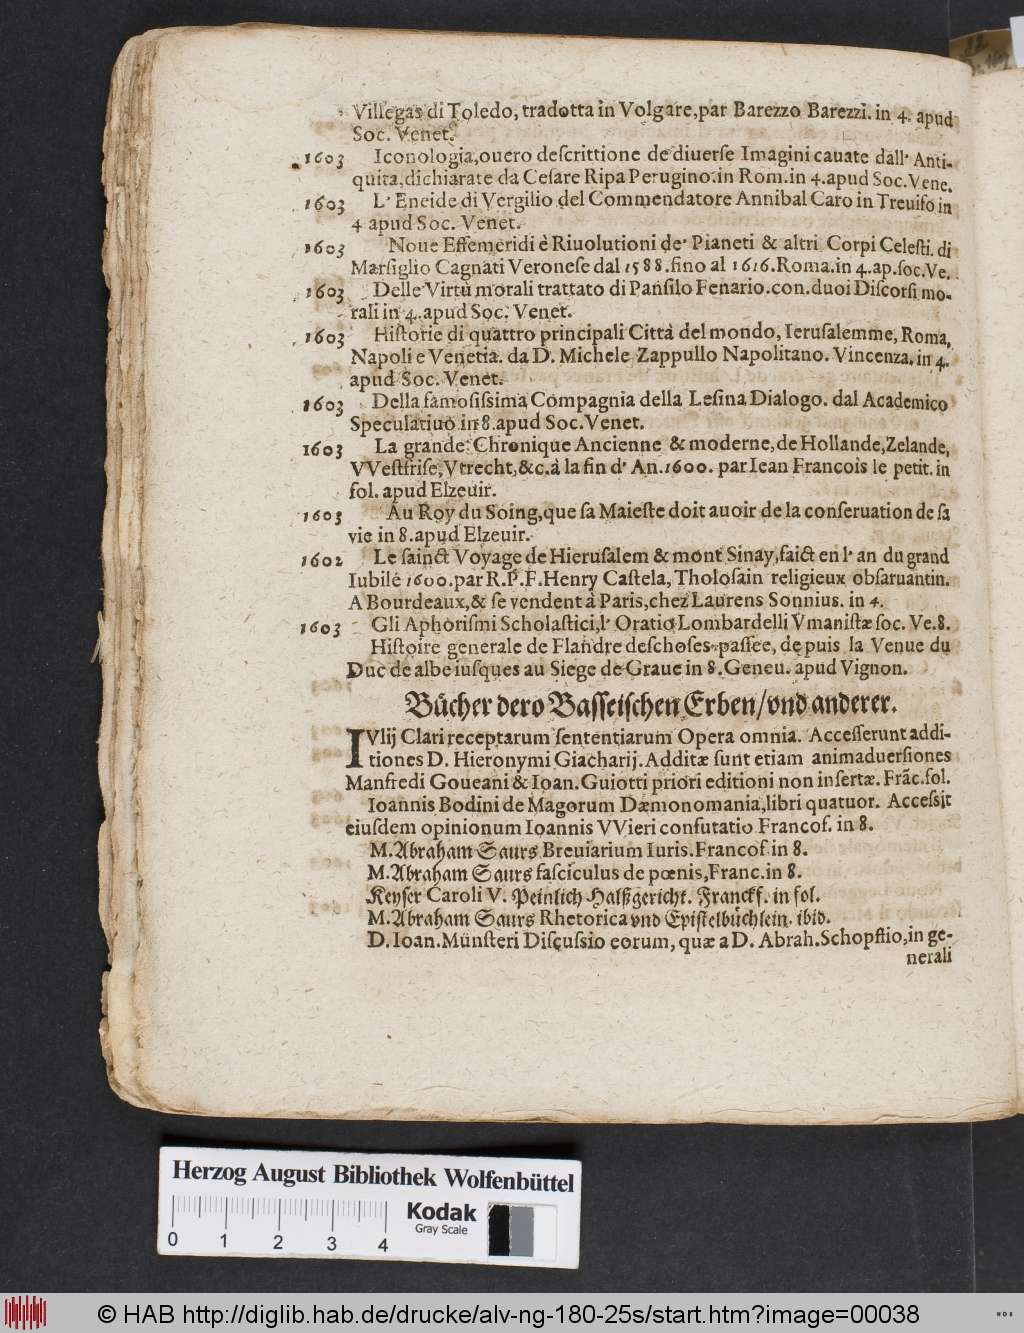 Villegas di Toledo, tradotta in Volgare, par Barezzo Barezzi. in 4. apud
Soc. Venet.
1603 Iconologia, ouero deſcrittione de diuerſe Imagini cauate dall' Anti-
quita, dichiarate da Ceſare Ripa Perugino: in Rom. in 4. apud Soc. Vene.
1603 L' Eneide di Vergilio del Commendatore Annibal Caro in Treuiſo in
4 apud Soc. Venet.
1603 Noue Effemeridi è Riuolutioni de' Pianeti & altri Corpi Celeſti. di
Marſiglio Cagnati Veroneſe dal 1588. fino al 1616. Roma. in 4. ap. ſoc. Ve.
1603 Delle Virtù morali trattato di Panſilo Fenario. con. duoi Diſcorſi mo-
rali in 4. apud Soc. Venet.
1603 Hiſtorie di quattro principali Città del mondo, Ieruſalemme, Roma,
Napoli e Venetia. da D. Michele Zappullo Napolitano. Vincenza. in 4.
apud Soc. Venet.
1603 Della famoſiſsima Compagnia della Leſina Dialogo. dal Academico
Speculatiuo in 8. apud Soc. Venet.
1603 La grande Chronique Ancienne & moderne, de Hollande, Zelande,
VVeſtfriſe, Vtrecht, &c. à la fin d' An. 1600. par Iean Francois le petit. in
fol. apud Elzeuir.
1603 Au Roy du Soing, que ſa Maieſte doit auoir de la conſeruation de ſa
vie in 8. apud Elzeuir.
1602 Le ſainct Voyage de Hieruſalem & mont Sinay, faict en l' an du grand
Iubilé 1600. par R. P. F. Henry Caſtela, Tholoſain religieux obſaruantin.
A Bourdeaux, & ſe vendent à Paris, chez Laurens Sonnius. in 4.
1603 Gli Aphoriſmi Scholaſtici, l' Oratio Lombardelli Vmaniſtæ ſoc. Ve. 8.
Hiſtoire generale de Flandre deſchoſes paſſee, depuis la Venue du
Duc de albe iuſques au Siege de Graue in 8. Geneu. apud Vignon.
Bücher dero Baſſeiſchen Erben/ vnd anderer.
IVlij Clari receptarum ſententiarum Opera omnia. Acceſſerunt addi-
tiones D. Hieronymi Giacharij. Additæ ſunt etiam animaduerſiones
Manfredi Goueani & Ioan. Guiotti priori editioni non inſertæ. Frãc. fol.
Ioannis Bodini de Magorum Dæmonomania, libri quatuor. Acceſsit
eiuſdem opinionum Ioannis VVieri confutatio Francof. in 8.
M. Abraham Saurs Breuiarium Iuris. Francof. in 8.
M. Abraham Saurs faſciculus de pœnis, Franc. in 8.
Keyſer Caroli V. Peinlich Halßgericht. Franckf. in fol.
M. Abraham Saurs Rhetorica vnd Epiſtelbüchlein. ibid.
D. Ioan. Münſteri Diſcuſsio eorum, quæ a D. Abrah. Schopffio, in ge-
nerali
Herzog August Bibliothek Wolfenbüttel
Kodak
Gray Scale
0 1 2 3 4
© HAB http://diglib.hab.de/drucke/alv-ng-180-25s/start.htm?image=00038